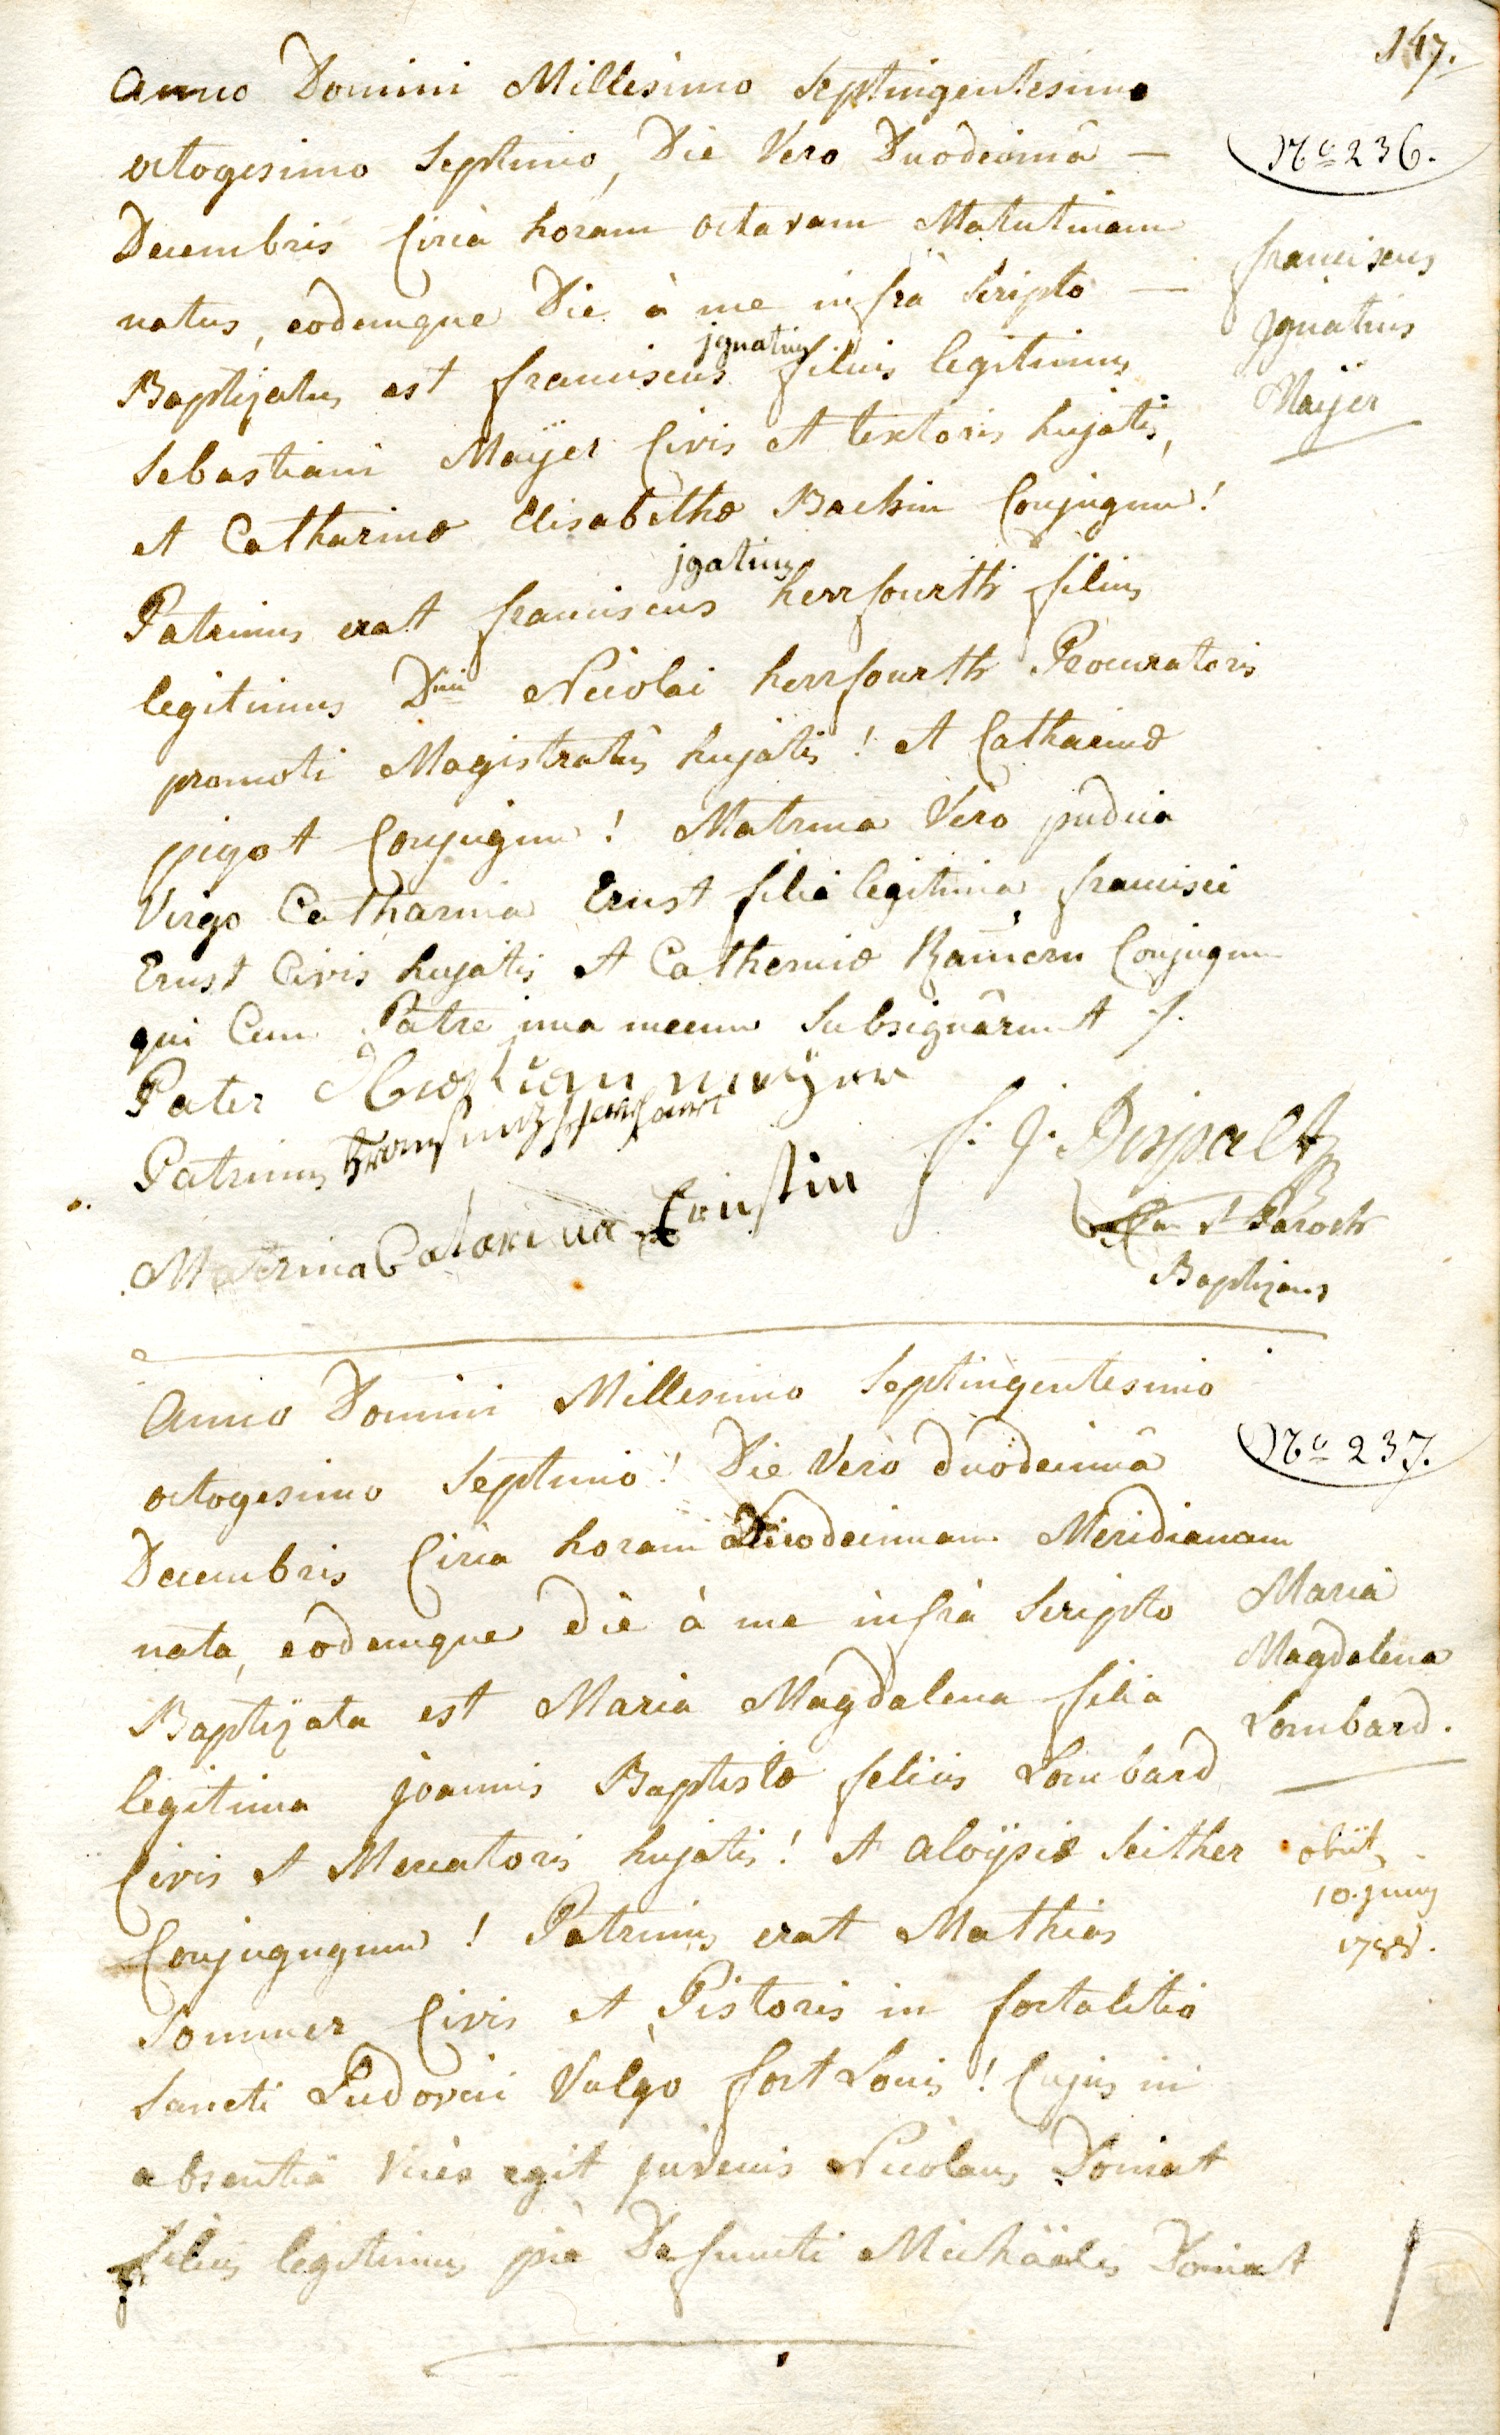 147.
Anno Domini Millesimo Septingentesimo
octogesimo Septimo, Die Vero Duodecimâ —
Nº 236.
Decembris Circà horam octavam Matutinam
natus, eodemque Die à me infrà Scripto —
franciscus
Ignatius
Maÿer
jgnatius
Baptizatus est franciscus filius legitimus
Sebastiani Maÿer Civis et textoris hujatis,
et Catharinæ Elisabethæ Conjugum!
jgatius
Patrinus erat franciscus herrfourth filius
legitimus Dni Nicolai herrfourth Procuratoris
promoti Magistratûs hujatis! et Catharinæ
pigot Conjugum! Matrina Vero pudica
Virgo Catharina Ernst filia legitima francisci
Ernst Civis hujatis et Catherinæ Conjugum
qui Cum Patre una mecum Subsignârunt ./.
Pater maÿer
Patrinus
Matrina Catarina Ernstin
f: J: Dispalt
Paroch
Baptizans
Anno Domini Millesimo Septingentesimo
octogesimo Septimo! Die Verò duodecimâ
Nº 237.
Decembris Circa horam Duodecimam Meridianam
nata, eodemque die à me infrà Scripto
Maria
Magdalena
Lombard.
Baptizata est Maria Magdalena filia
legitima joannis Baptistæ felicis Lombard
Civis et Mercatoris hujatis! et aloÿsiæ Seither
obiit
10. junij
1788.
Conjugugum! Patrinus erat Mathias
Sommer Civis et Pistoris in fortalitio
Sancti Ludovici Vulgo fort Louis! Cujus in
absentiâ vices egit juvenis Nicolaus Doniat
filius legitimus piè Defuncti Michäelis Doniat